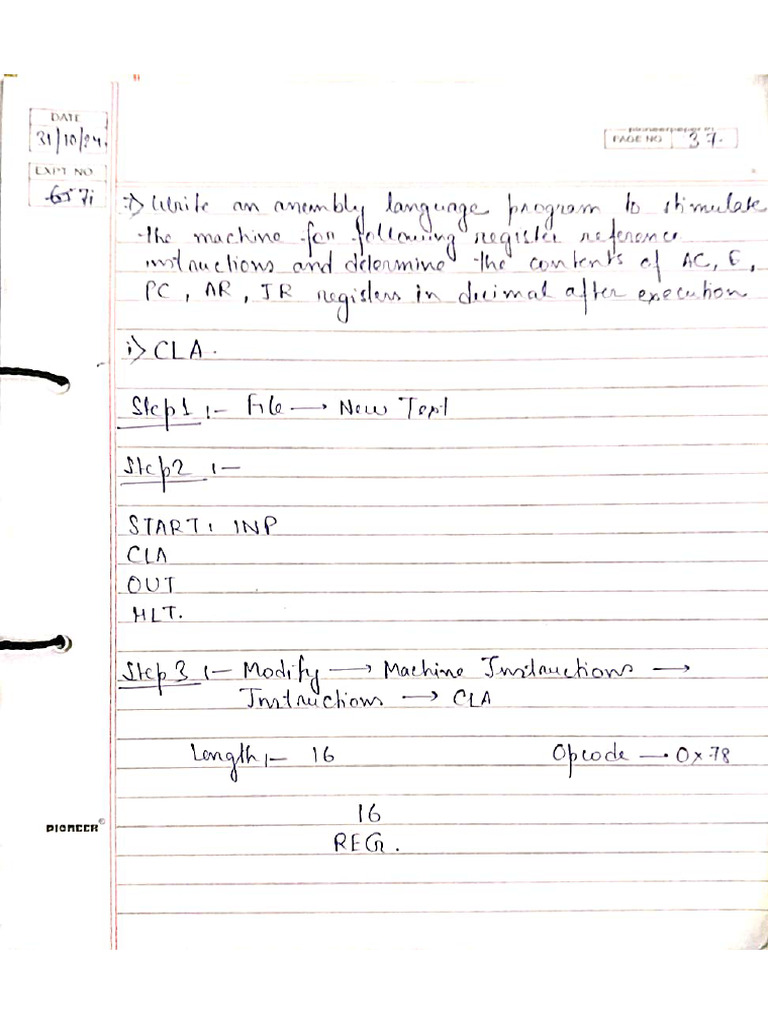 DATE
31/10/24.
EXPT NO
7i
PAGE NO 37.
7) Write an assembly language program to stimulate
the machine for following register reference
instructions and determine the contents of AC, E,
PC, AR, IR registers in decimal after execution
i) CLA.
Step 1 :- File → New Text
Step 2 :-
START: INP
CLA
OUT
HLT.
Step 3 :- Modify → Machine Instructions →
Instructions → CLA
Length :- 16 Opcode — 0x78
16
REG.
PIONEER